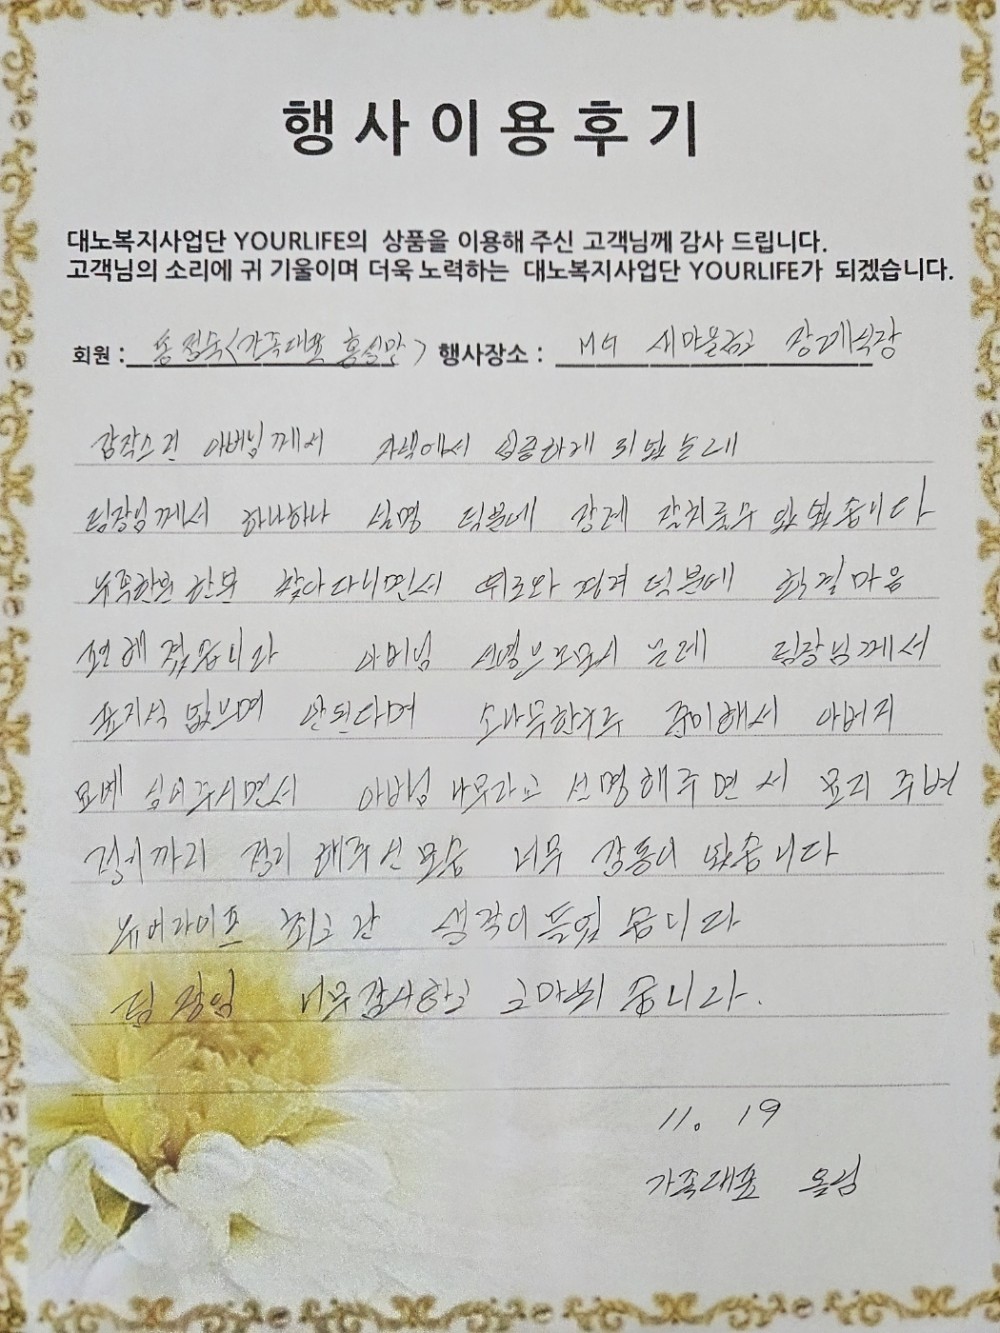 행사이용후기
대노복지사업단 YOURLIFE의 상품을 이용해 주신 고객님께 감사 드립니다.
고객님의 소리에 귀 기울이며 더욱 노력하는 대노복지사업단 YOURLIFE가 되겠습니다.
회원 : 송정숙<가족대표 홍실만> 행사장소 : MG 새마을금고 장례식장
갑작스런 아버님께서 자택에서 되셨는데
팀장님께서 하나하나 설명 덕분에 장례 잘치룰수 있었습니다
유족한분 한분 찾아다니면서 위로와 격려 덕분에 한결마음
편해 졌습니다 아버님 선영으로모시는데 팀장님께서
표지석 없으며 안된다며 소나무한구루 준비해서 아버지
묘에 심어주시면서 아버님 나무라고 선명해주면서 묘지 주변
정리까지 정리 해주신모습 너무 감동이 었습니다
유어라이프 최고란 생각이들었습니다
팀장임 너무감사하고 고마웠습니다.
11. 19
가족대표 올림